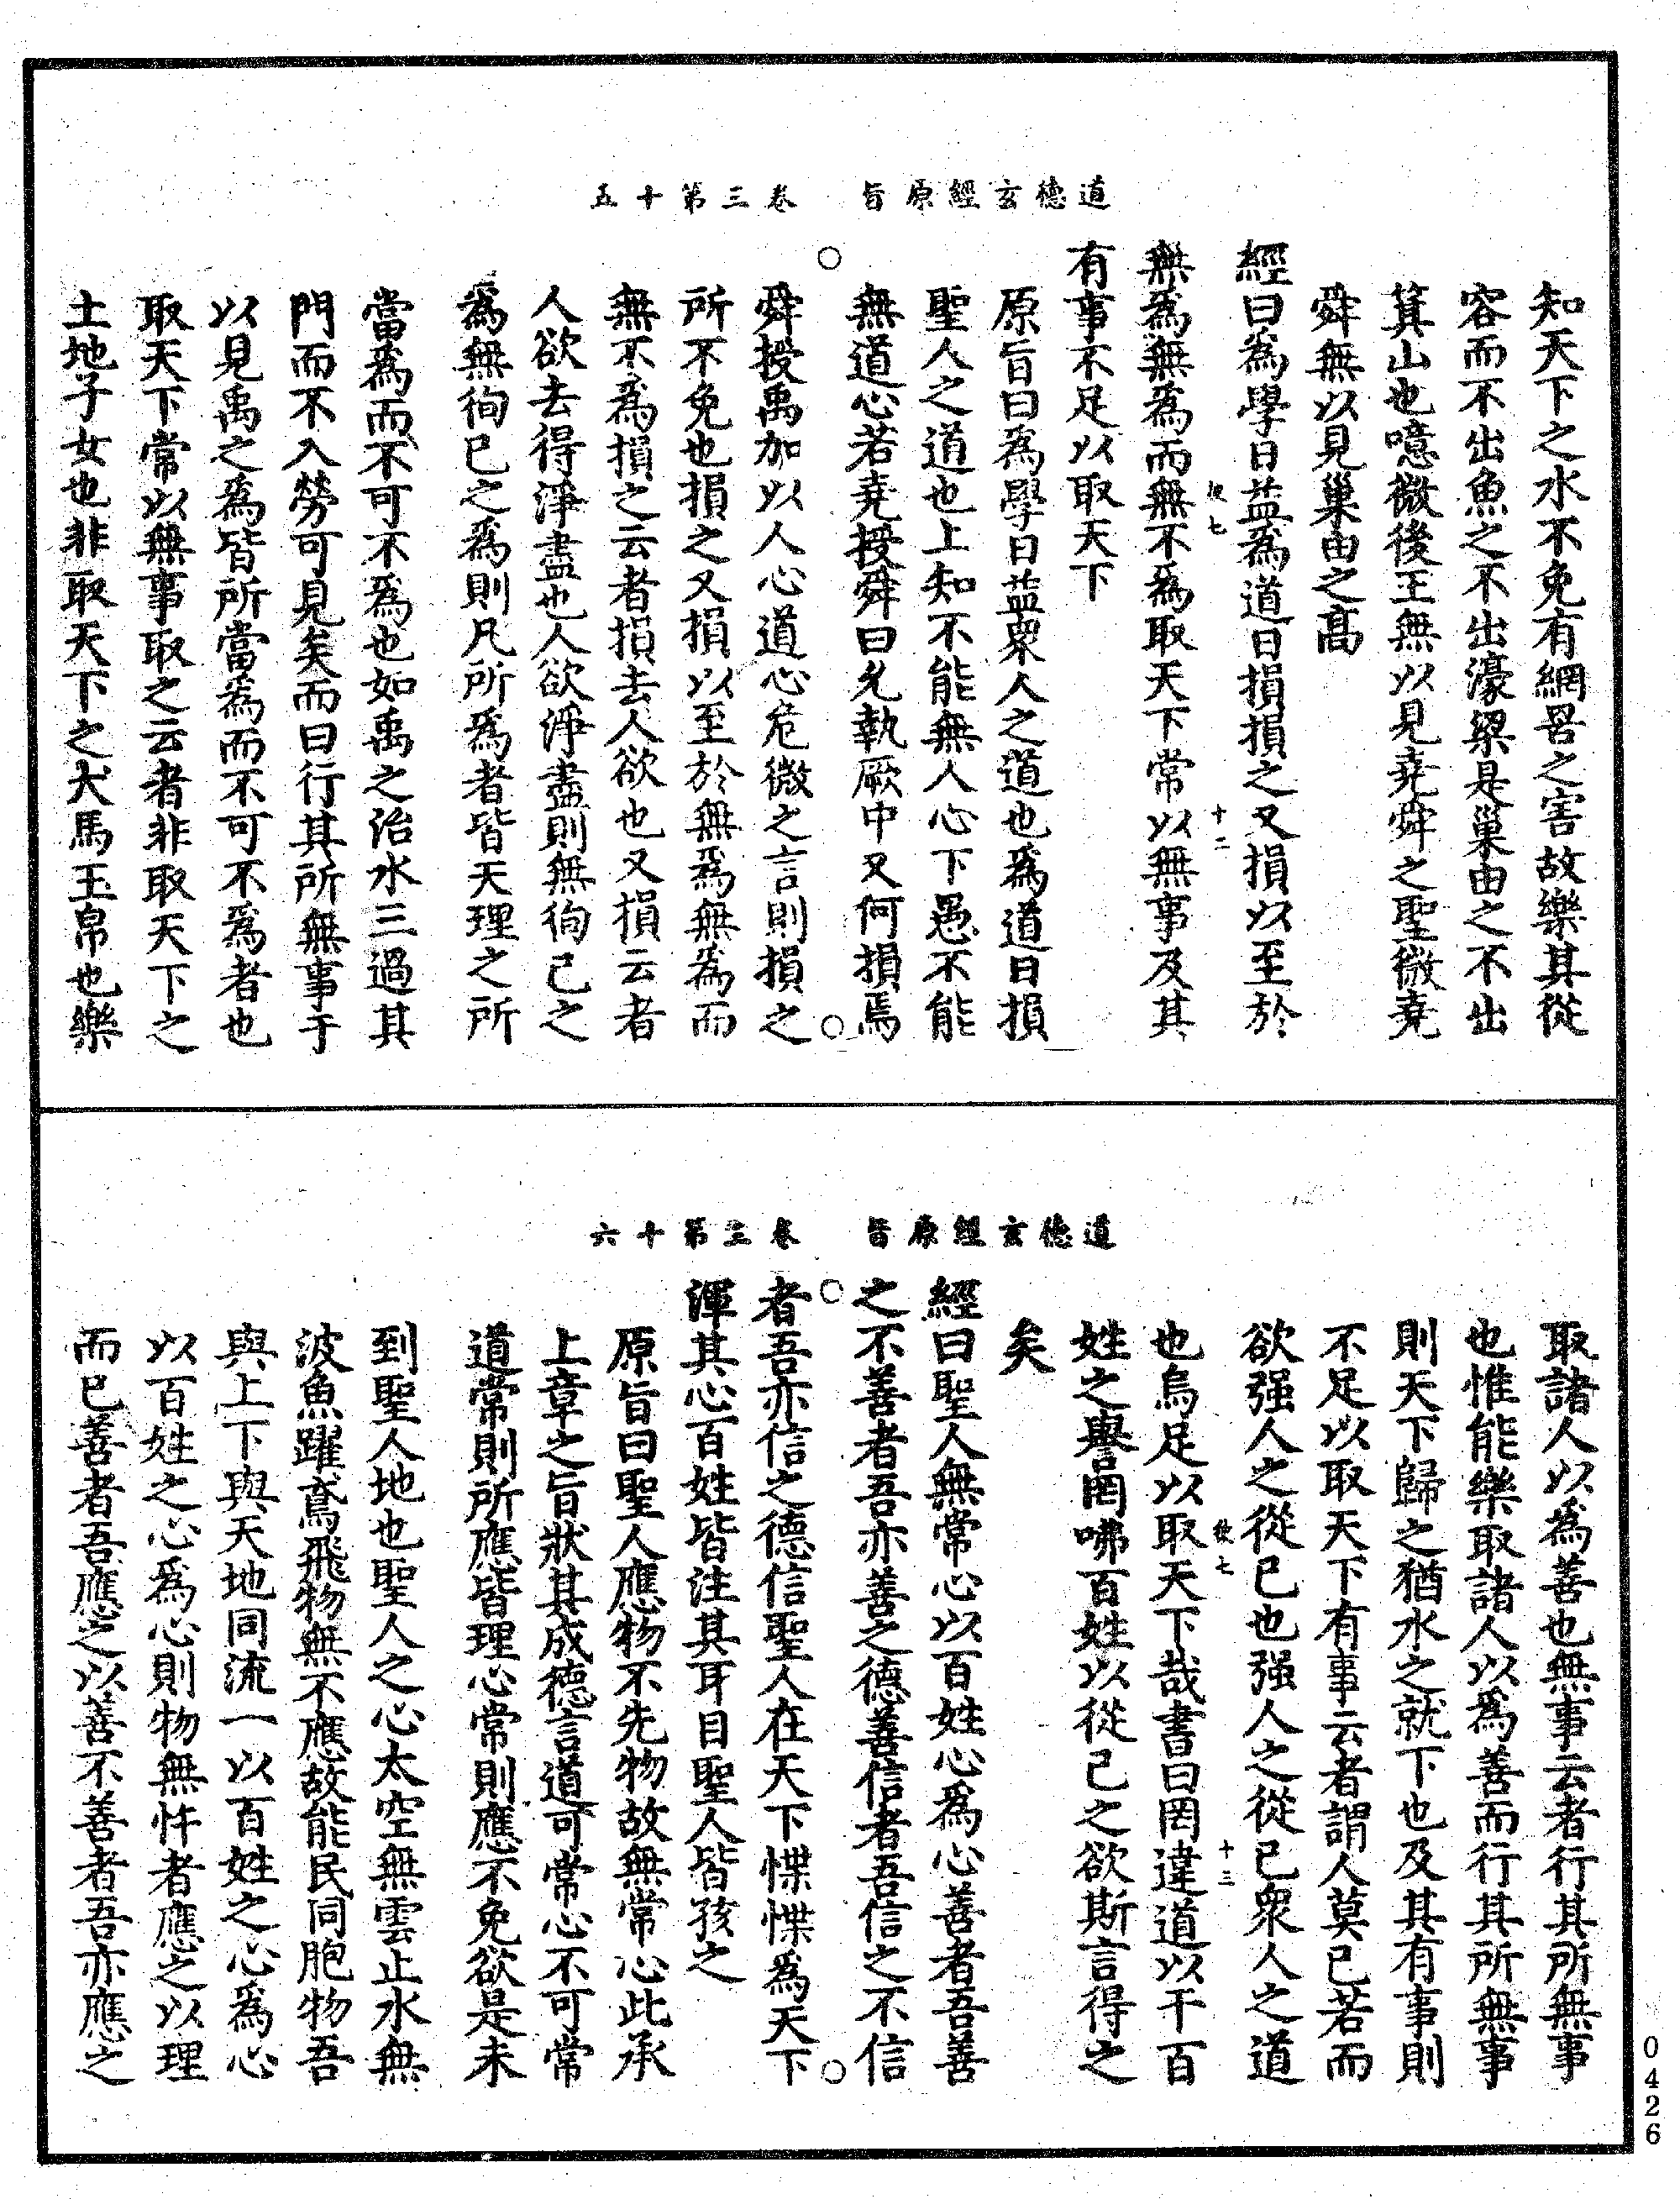 道德玄經原旨　卷三第十五
知天下之水不免有網罟之害故樂其從
容而不出魚之不出濠梁是巢由之不出
箕山也噫微後王無以見堯舜之聖微堯
舜無以見巢由之高
經曰為學日益為道日損損之又損以至於
十二
無為無為而無不為取天下常以無事及其
有事不足以取天下
原旨曰為學日益衆人之道也爲道日損
聖人之道也上知不能無人心下愚不能
無道心若堯授舜曰允執厥中又何損焉
舜授禹加以人心道心危微之言則損之
所不免也損之又損以至於無爲無為而
無不為損之云者損去人欲也又損云者
人欲去得淨盡也人欲淨盡則無徇己之
爲無徇己之爲則凡所爲者皆天理之所
當爲而不可不爲也如禹之治水三過其
門而不入勞可見矣而曰行其所無事于
以見禹之爲皆所當爲而不可不爲者也
取天下常以無事取之云者非取天下之
土地子女也非取天下之犬馬玉帛也樂
道德玄經原旨　卷三第十六
取諸人以爲善也無事云者行其所無事
也惟能樂取諸人以爲善而行其所無事
則天下歸之猶水之就下也及其有事則
不足以取天下有事云者謂人莫已若而
欲强人之從已也强人之從已衆人之道
十三
也烏足以取天下哉書曰罔違道以干百
姓之譽罔咈百姓以從己之欲斯言得之
矣
經曰聖人無常心以百姓心爲心善者吾善
之不善者吾亦善之德善信者吾信之不信
者吾亦信之德信聖人在天下惵惵為天下
渾其心百姓皆注其耳目聖人皆孩之
原旨曰聖人應物不先物故無常心此承
上章之旨狀其成德言道可常心不可常
道常則所應皆理心常則應不免欲是未
到聖人地也聖人之心太空無雲止水無
波魚躍鳶飛物無不應故能民同胞物吾
與上下與天地同流一以百姓之心爲心
以百姓之心爲心則物無忤者應之以理
而已善者吾應之以善不善者吾亦應之
0426